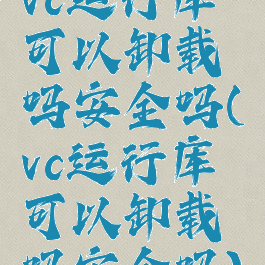 vc运行库
可以卸载
吗安全吗(
vc运行库
可以卸载
吗安全吗)